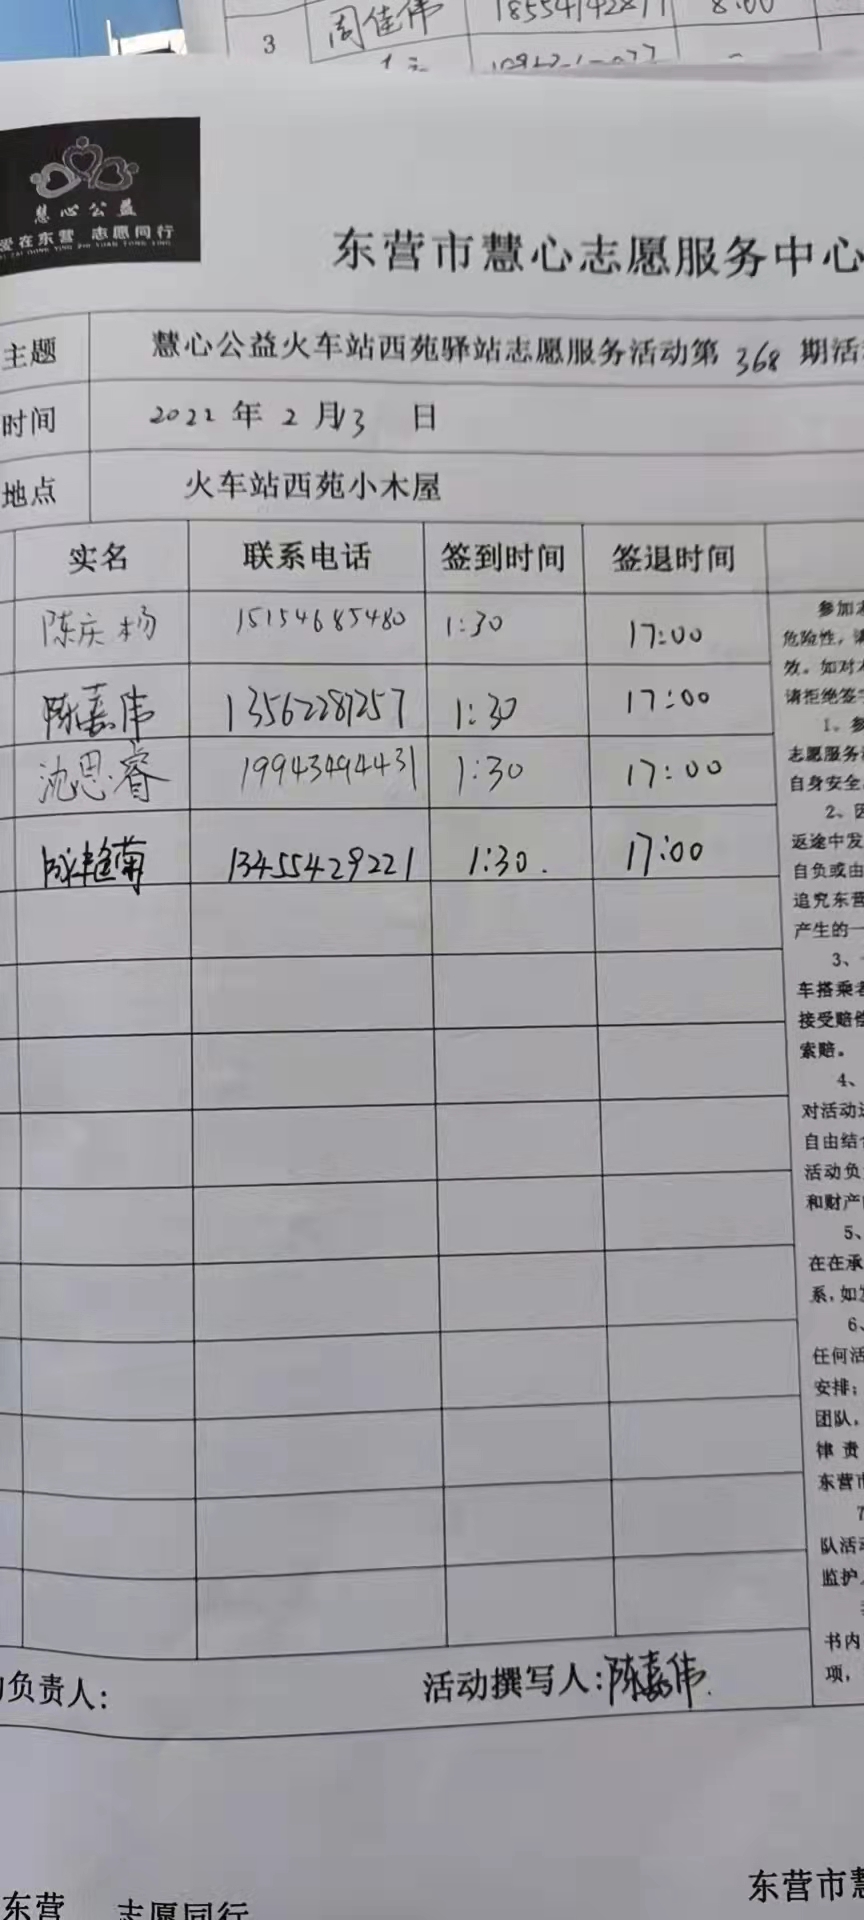 3 周佳伟 18554142871 8:00
慧心公益
爱在东营 志愿同行
东营市慧心志愿服务中心
主题 慧心公益火车站西苑驿站志愿服务活动第 368 期活
时间 2022 年 2 月13 日
地点 火车站西苑小木屋
实名 联系电话 签到时间 签退时间
陈庆杨 15154685480 1:30 17:00
陈嘉伟 13562287257 1:30 17:00
沈思睿 19943494431 1:30 17:00
13455429221 1:30. 17:00
参加
危险性，
效。如对
请拒绝签
1、参
志愿服务
自身安全
2、因
返途中发
自负或由
追究东营
产生的一
3、
车搭乘者
接受赔偿
索赔。
4、
对活动
自由结合
活动负
和财产
5、
在在承
系，如
6、
任何活
安排；
团队，
律责
东营市
7
队活动
监护
书内
项，
负责人： 活动撰写人：陈嘉伟
东营市慧
东营 志愿同行